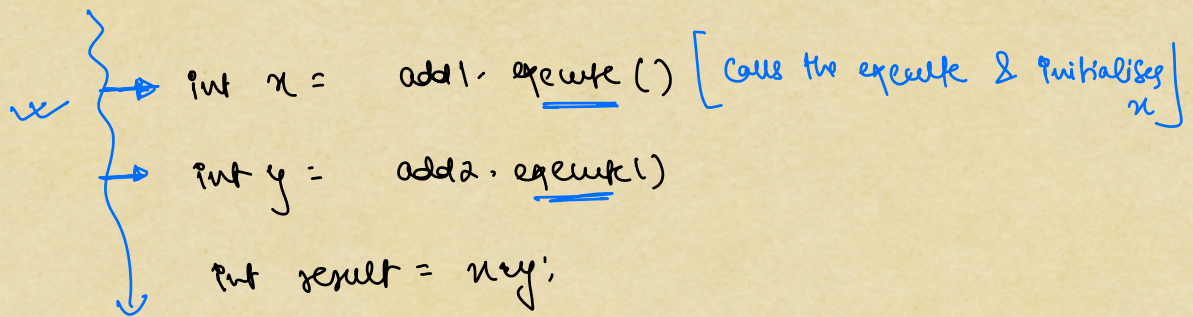 int x = add1. execute () [calls the execute & initialises x]
int y = add2. execute()
int result = x+y;